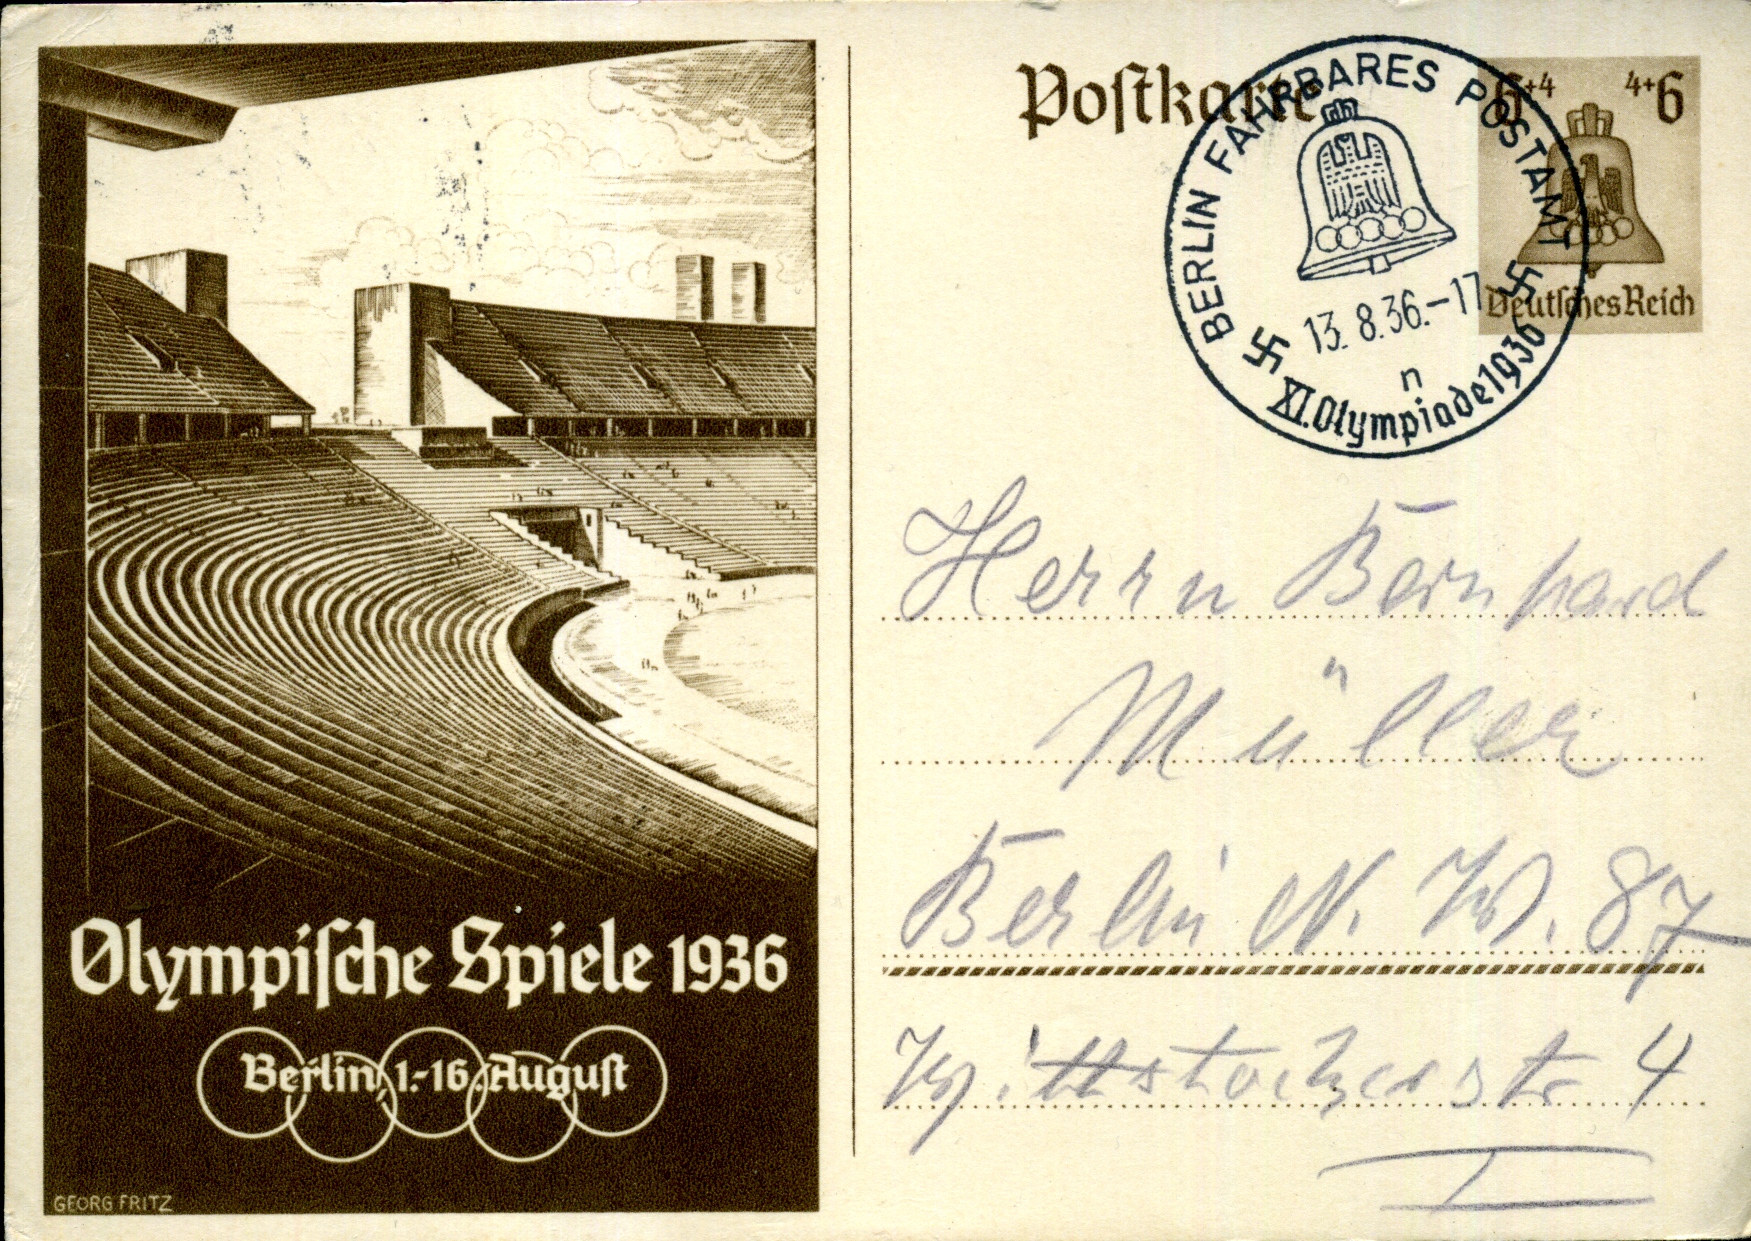 Olympiſche Spiele 1936
Berlin, 1.-16. Auguſt
GEORG FRITZ
Poſtkarte
BERLIN FAHRBARES POSTAMT
13.8.36.-17
n
XI. Olympiade 1936
6+4 4+6
Deutſches Reich
Herrn Bernhard
Müller
Berlin N. W. 87
Wittstockerstr 4
I